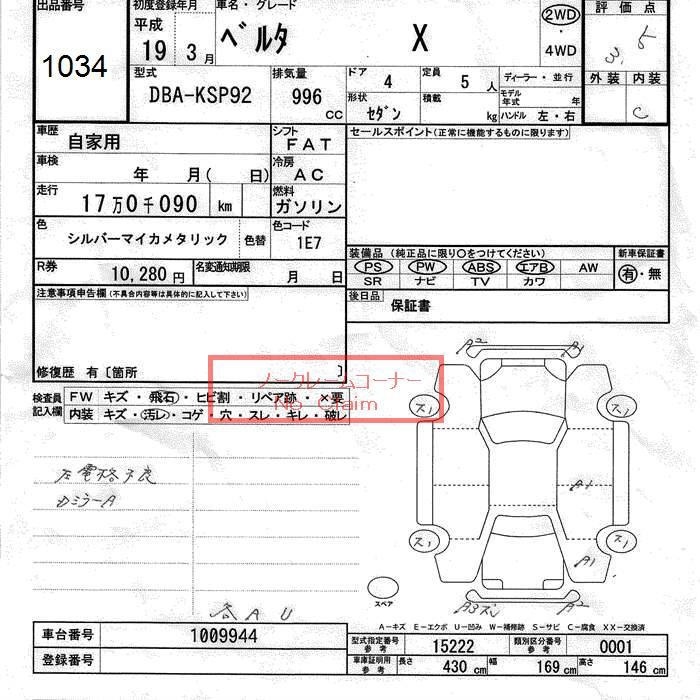 出品番号
1034
初度登録年月
平成
19 3月
車名・グレード
ベルタ X
2WD
・
4WD
評価点
3.5
外装 内装
C
型式
DBA-KSP92
排気量
996
CC
ドア 4
定員 5人
ディーラー・並行
形状 セダン
積載 kg
モデル年式 年
ハンドル 左・右
車歴
自家用
シフト
FAT
セールスポイント(正常に機能するものに限ります)
車検
年 月( 日)
冷房
AC
走行
17万0千090 km
燃料
ガソリン
色
シルバーマイカメタリック 色替
色コード
1E7
装備品(純正品に限り○をつけてください)
新車保証書
PS PW ABS エアB AW
SR ナビ TV カワ
有・無
R券
10,280円
名変通知期限
月 日
後日品
保証書
注意事項申告欄(不具合内容等は具体的に記入して下さい)
修復歴 有〔箇所 〕
ノークレームコーナー
No Claim
検査員記入欄
FW キズ・飛石・ヒビ割・リペア跡・×要
内装 キズ・汚レ・コゲ・穴・スレ・キレ・破レ
左電格不良
Dミラー A
各 A U
A2 A1
ス1 ス1
A1
ス1 ス1
A1
A3 ズレ A2
スペア
A-キズ E-エクボ U-凹み W-補修跡 S-サビ C-腐食 XX-交換済
車台番号 1009944
登録番号
型式指定番号 参考 15222
類別区分番号 参考 0001
車庫証明用 参考 長さ 430 cm 幅 169 cm 高さ 146 cm